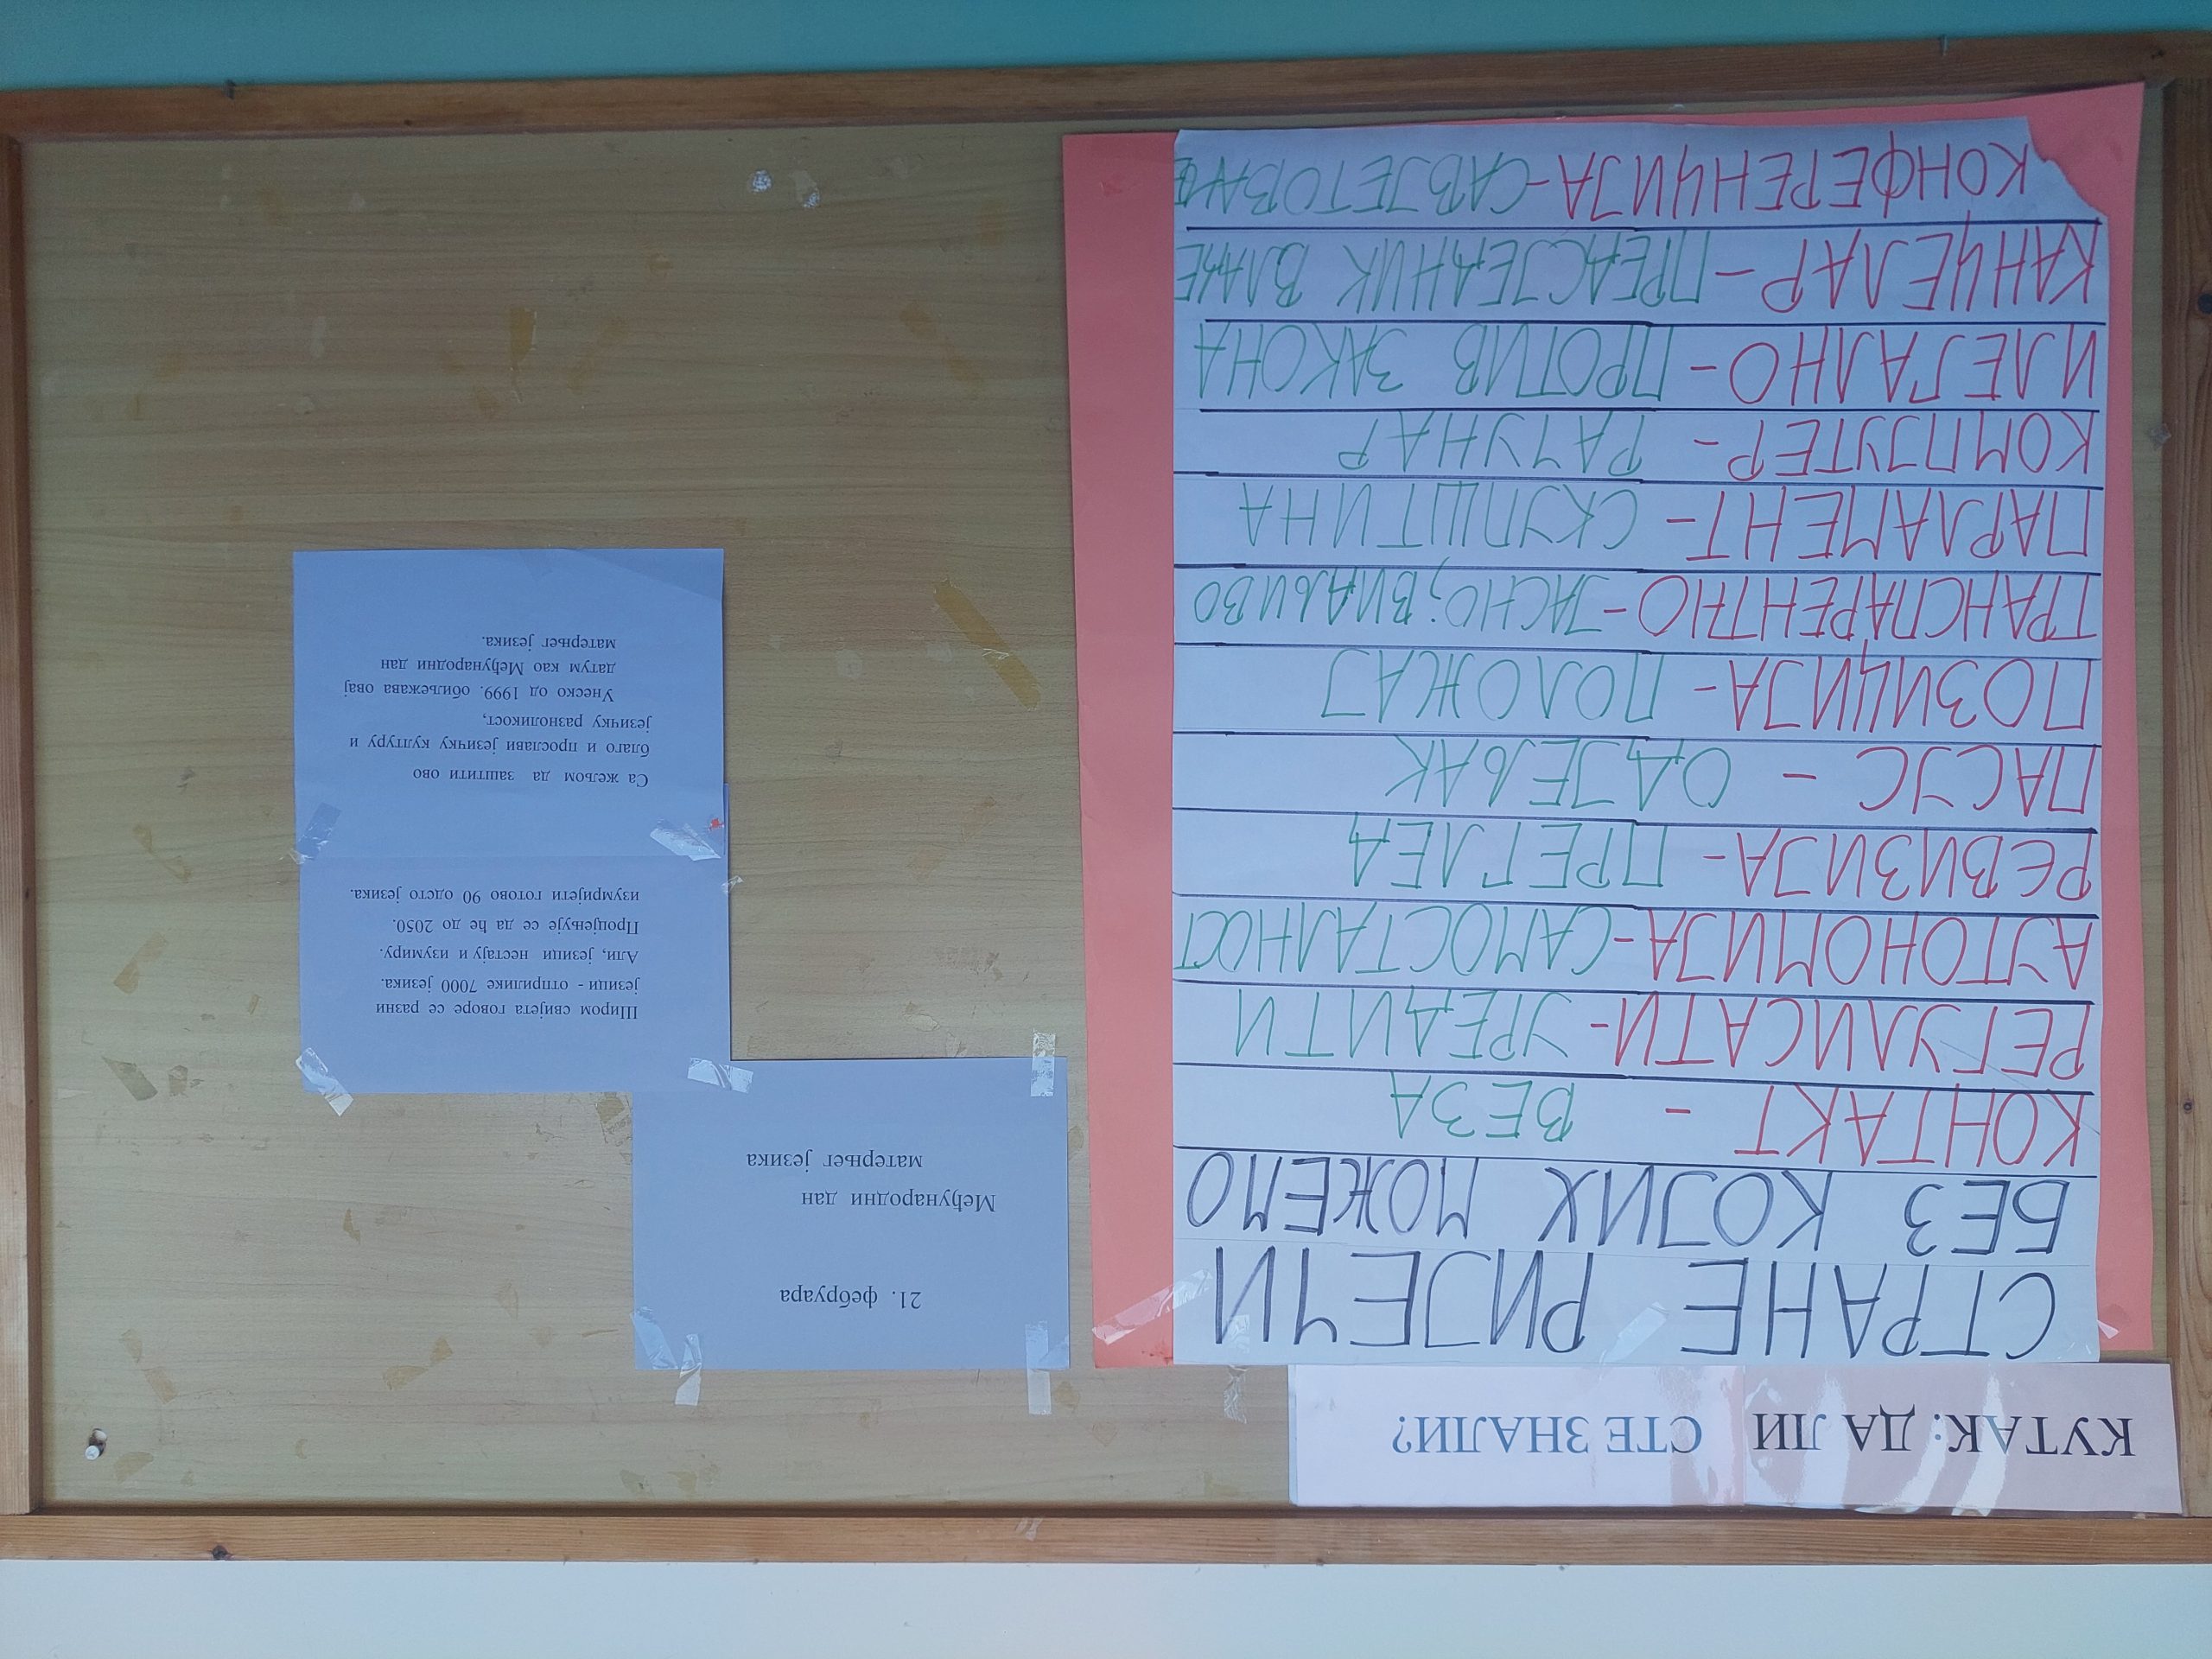 КУТАК: ДА ЛИ СТЕ ЗНАЛИ?
СТРАНЕ РИЈЕЧИ
БЕЗ КОЈИХ МОЖЕМО
КОНТАКТ - ВЕЗА
РЕГУЛИСАТИ - УРЕДИТИ
АУТОНОМИЈА - САМОСТАЛНОСТ
РЕВИЗИЈА - ПРЕГЛЕД
ПАСУС - ОДЈЕЉАК
ПОЗИЦИЈА - ПОЛОЖАЈ
ТРАНСПАРЕНТНО - ЈАСНО; ВИДЉИВО
ПАРЛАМЕНТ - СКУПШТИНА
КОМПЈУТЕР - РАЧУНАР
ИЛЕГАЛНО - ПРОТИВ ЗАКОНА
КАНЦЕЛАР - ПРЕДСЈЕДНИК ВЛАДЕ
КОНФЕРЕНЦИЈА - САВЈЕТОВАЊЕ
21. фебруара
Међународни дан
матерњег језика
Широм свијета говоре се разни
језици - отприлике 7000 језика.
Али, језици нестају и изумиру.
Процјењује се да ће до 2050.
изумријети готово 90 одсто језика.
Са жељом да заштити ово
благо и прослави језичку културу и
језичку разноликост,
Унеско од 1999. обиљежава овај
датум као Међународни дан
матерњег језика.